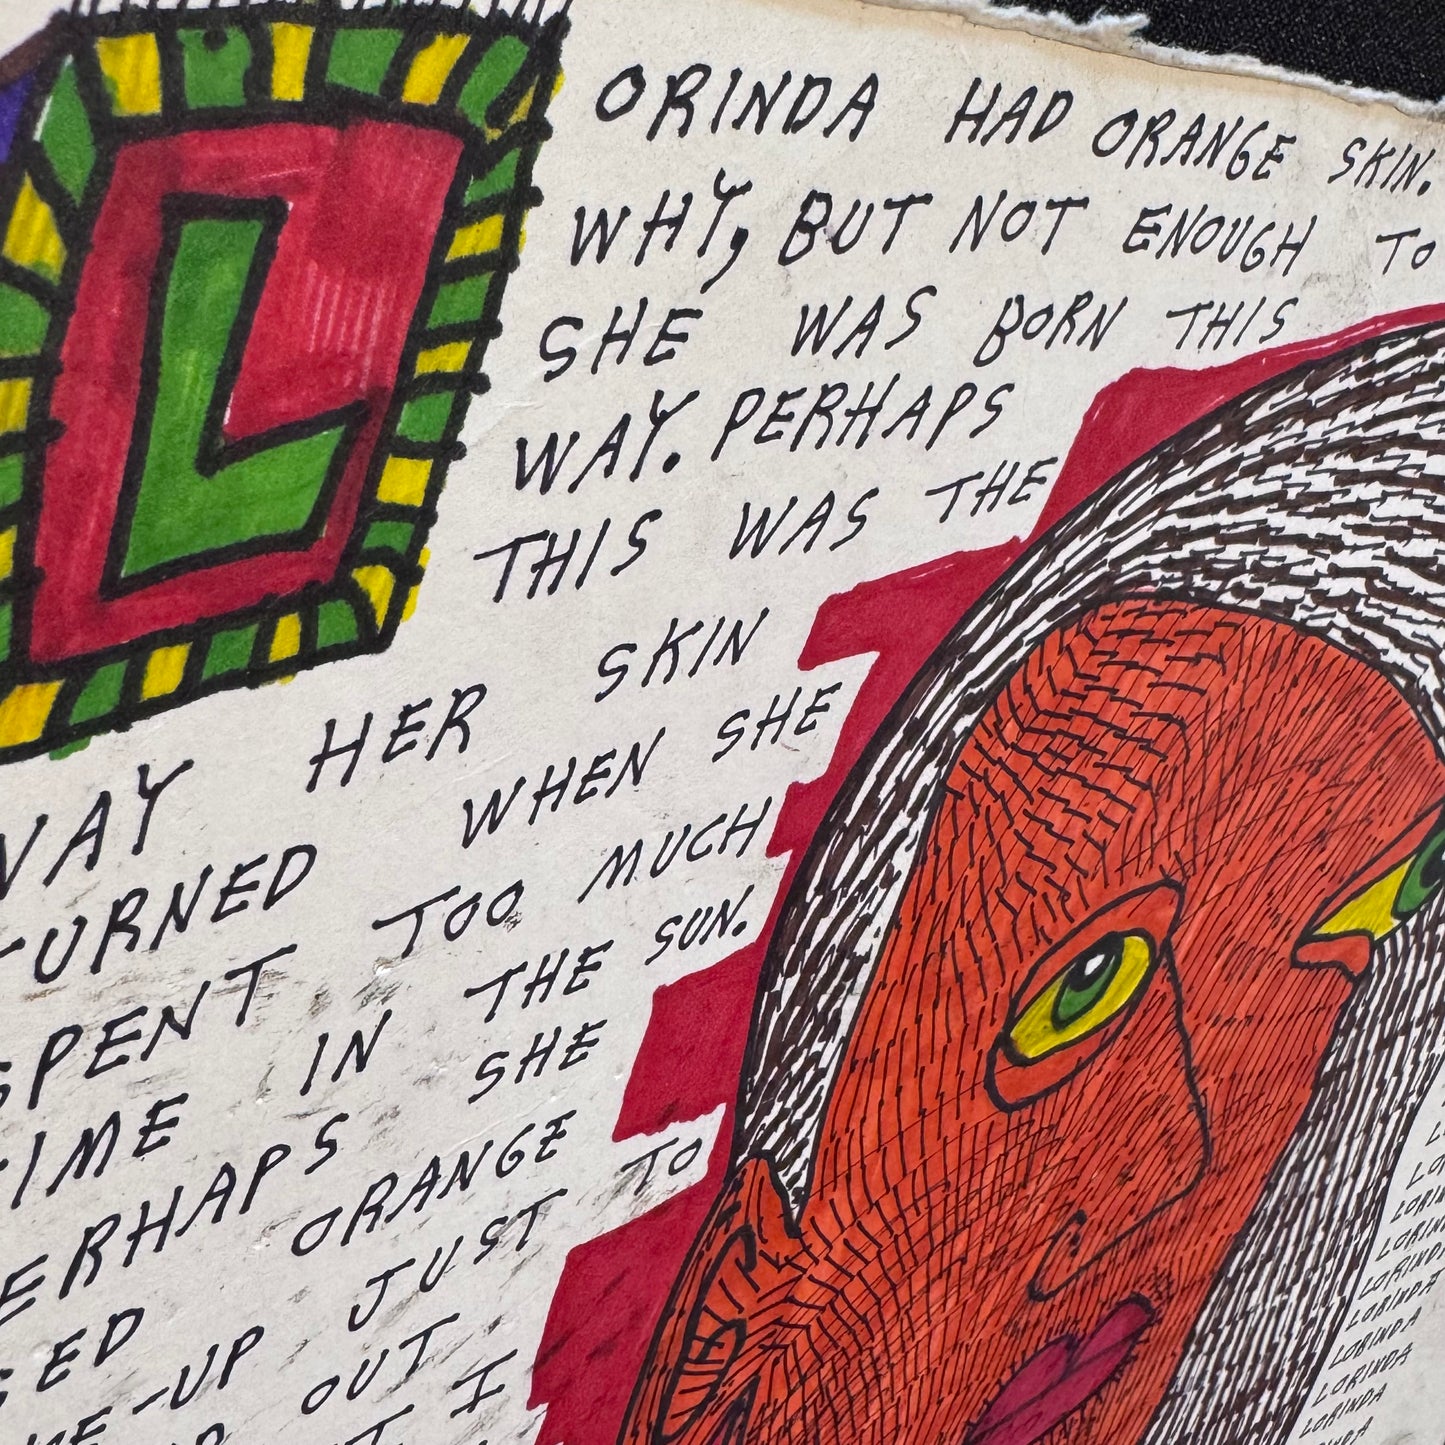 LORINDA HAD ORANGE SKIN.
WHY, BUT NOT ENOUGH TO
SHE WAS BORN THIS
WAY. PERHAPS
THIS WAS THE
WAY HER SKIN
TURNED WHEN SHE
SPENT TOO MUCH
TIME IN THE SUN.
PERHAPS SHE
ORANGE
-UP JUST TO
OUT
I
LORINDA
LORINDA
LORINDA
LORINDA
LORINDA
LORINDA
LORINDA